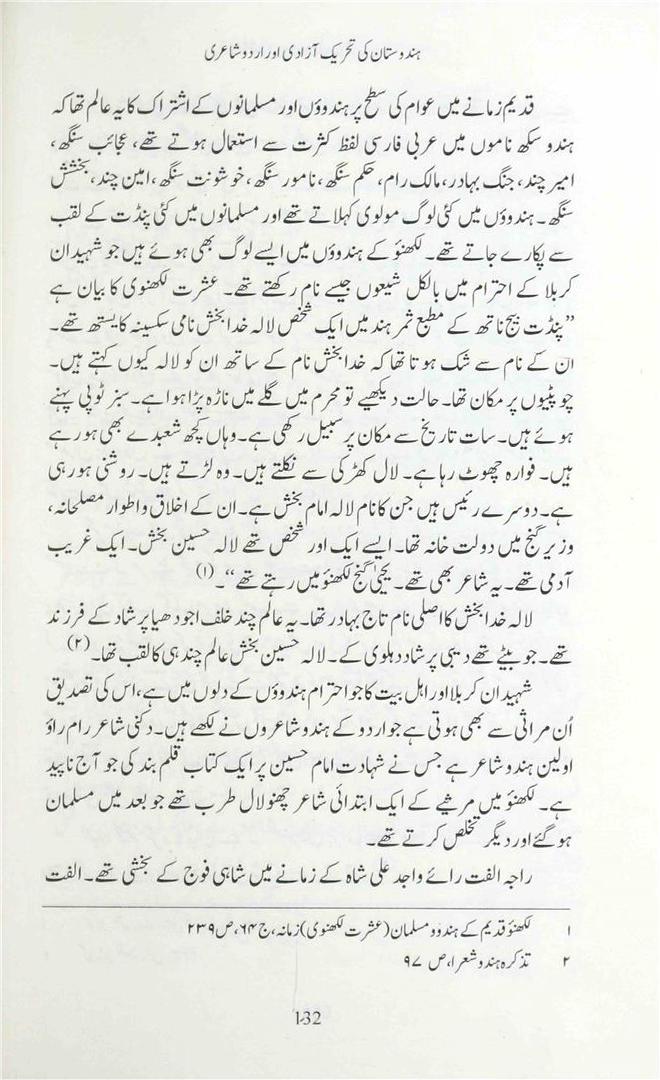 ہندوستان کی تحریک آزادی اور اردو شاعری
قدیم زمانے میں عوام کی سطح پر ہندوؤں اور مسلمانوں کے اشتراک کا یہ عالم تھا کہ
ہندو سکھ ناموں میں عربی فارسی لفظ کثرت سے استعمال ہوتے تھے، عجائب سنگھ،
امیر چند، جنگ بہادر، مالک رام، حکم سنگھ، نامور سنگھ، خوشونت سنگھ، امین چند، بخشش
سنگھ۔ ہندوؤں میں کئی لوگ مولوی کہلاتے تھے اور مسلمانوں میں کئی پنڈت کے لقب
سے پکارے جاتے تھے۔ لکھنؤ کے ہندوؤں میں ایسے لوگ بھی ہوئے ہیں جو شہیدان
کربلا کے احترام میں بالکل شیعوں جیسے نام رکھتے تھے۔ عشرت لکھنوی کا بیان ہے
”پنڈت بیج ناتھ کے مطبع ثمر ہند میں ایک شخص لالہ خدا بخش نامی سکسینہ کایستھ تھے۔
ان کے نام سے شک ہوتا تھا کہ خدا بخش نام کے ساتھ ان کو لالہ کیوں کہتے ہیں۔
چوپٹیوں پر مکان تھا۔ حالت دیکھیے تو محرم میں گلے میں ناڑہ پڑا ہوا ہے۔ سبز ٹوپی پہنے
ہوئے ہیں۔ سات تاریخ سے مکان پر سبیل رکھی ہے۔ وہاں کچھ شعبدے بھی ہو رہے
ہیں۔ فوارہ چھوٹ رہا ہے۔ لال کھڑکی سے نکلتے ہیں۔ وہ لڑتے ہیں۔ روشنی ہو رہی
ہے۔ دوسرے رئیس ہیں جن کا نام لالہ امام بخش ہے۔ ان کے اخلاق و اطوار مصلحانہ،
وزیر گنج میں دولت خانہ تھا۔ ایسے ایک اور شخص تھے لالہ حسین بخش۔ ایک غریب
آدمی تھے۔ یہ شاعر بھی تھے۔ یحییٰ گنج لکھنؤ میں رہتے تھے“۔ (۱)
لالہ خدا بخش کا اصلی نام تاج بہادر تھا۔ یہ عالم چند خلف اجودھیا پرشاد کے فرزند
تھے۔ جو بیٹے تھے دیبی پرشاد دہلوی کے۔ لالہ حسین بخش عالم چند ہی کا لقب تھا۔ (۲)
شہیدان کربلا اور اہل بیت کا جو احترام ہندوؤں کے دلوں میں ہے، اس کی تصدیق
اُن مراثی سے بھی ہوتی ہے جو اردو کے ہندو شاعروں نے لکھے ہیں۔ دکنی شاعر رام راؤ
اولین ہندو شاعر ہے جس نے شہادت امام حسین پر ایک کتاب قلم بند کی جو آج ناپید
ہے۔ لکھنؤ میں مرثیے کے ایک ابتدائی شاعر چھنو لال طرب تھے جو بعد میں مسلمان
ہو گئے اور دیگر تخلص کرتے تھے۔
راجہ الفت رائے واجد علی شاہ کے زمانے میں شاہی فوج کے بخشی تھے۔ الفت
۱ لکھنؤ قدیم کے ہندو و مسلمان (عشرت لکھنوی) زمانہ، ج ۶۴، ص ۲۳۹
۲ تذکرہ ہندو شعرا، ص ۹۷
132